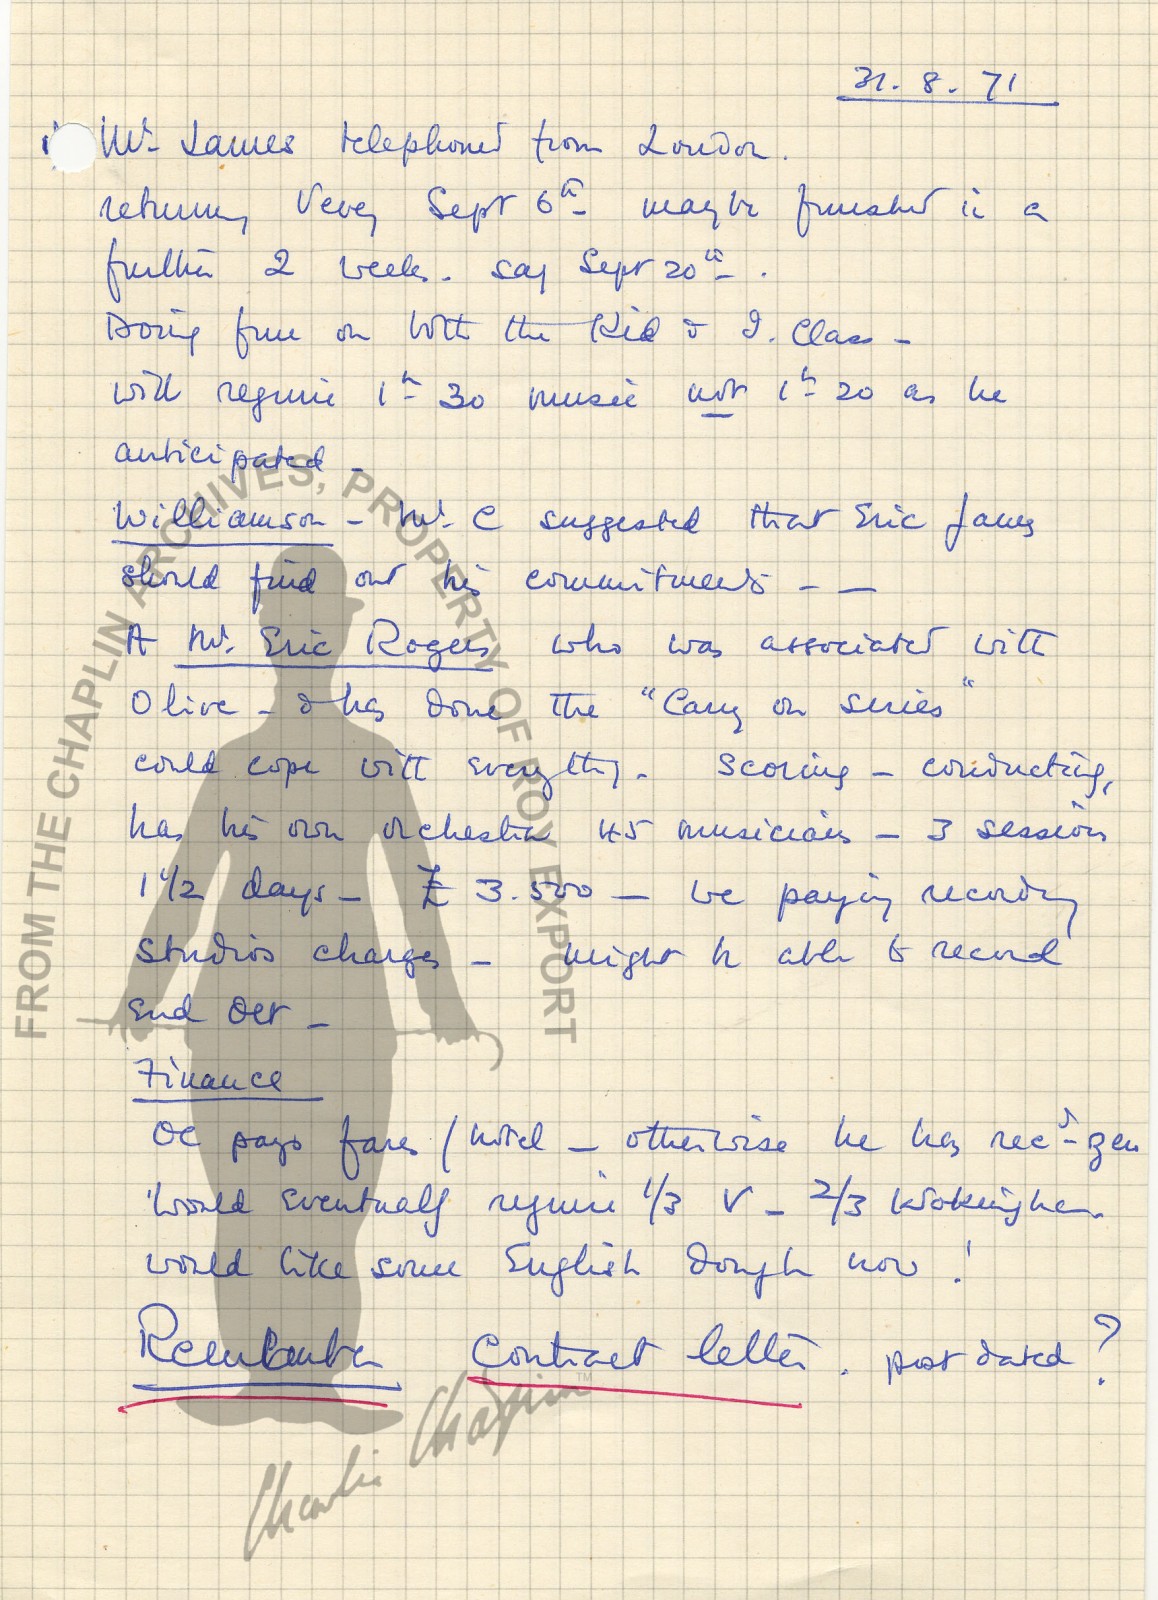 31. 8. 71
Mr. James telephoned from London.
returning Vevey Sept 6th maybe finished in a
further 2 weeks. say Sept 20th.
Doing fine on both the Kid & I. Class -
will require 1h 30 music not 1h 20 as he
anticipated -
Williamson - Mr. C suggested that Eric James
should find out his commitments - -
A Mr. Eric Rogers who was associated with
Olive - & has done the "Carry on series"
could cope with everything. Scoring - conducting,
has his own orchestra 45 musicians - 3 session
1 1/2 days - £ 3.500 - we paying recording
studios charges - might be able to record
End Oct -
Finance
OC pays fares / hotel - otherwise he has recd
would eventually require 1/3 V - 2/3 Wokingham.
would like some English dough now!
Remember Contract letter. post dated?
FROM THE CHAPLIN ARCHIVES, PROPERTY OF ROY EXPORT
Charlie Chaplin TM